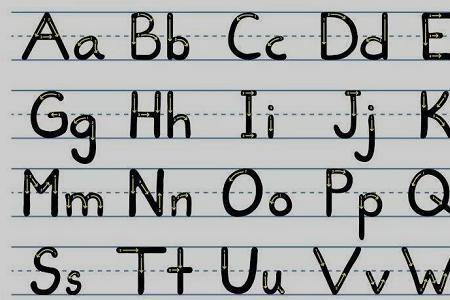 Aa Bb Cc Dd E
Gg Hh Ii Jj K
Mm Nn Oo Pp Q
Ss Tt Uu Vv W